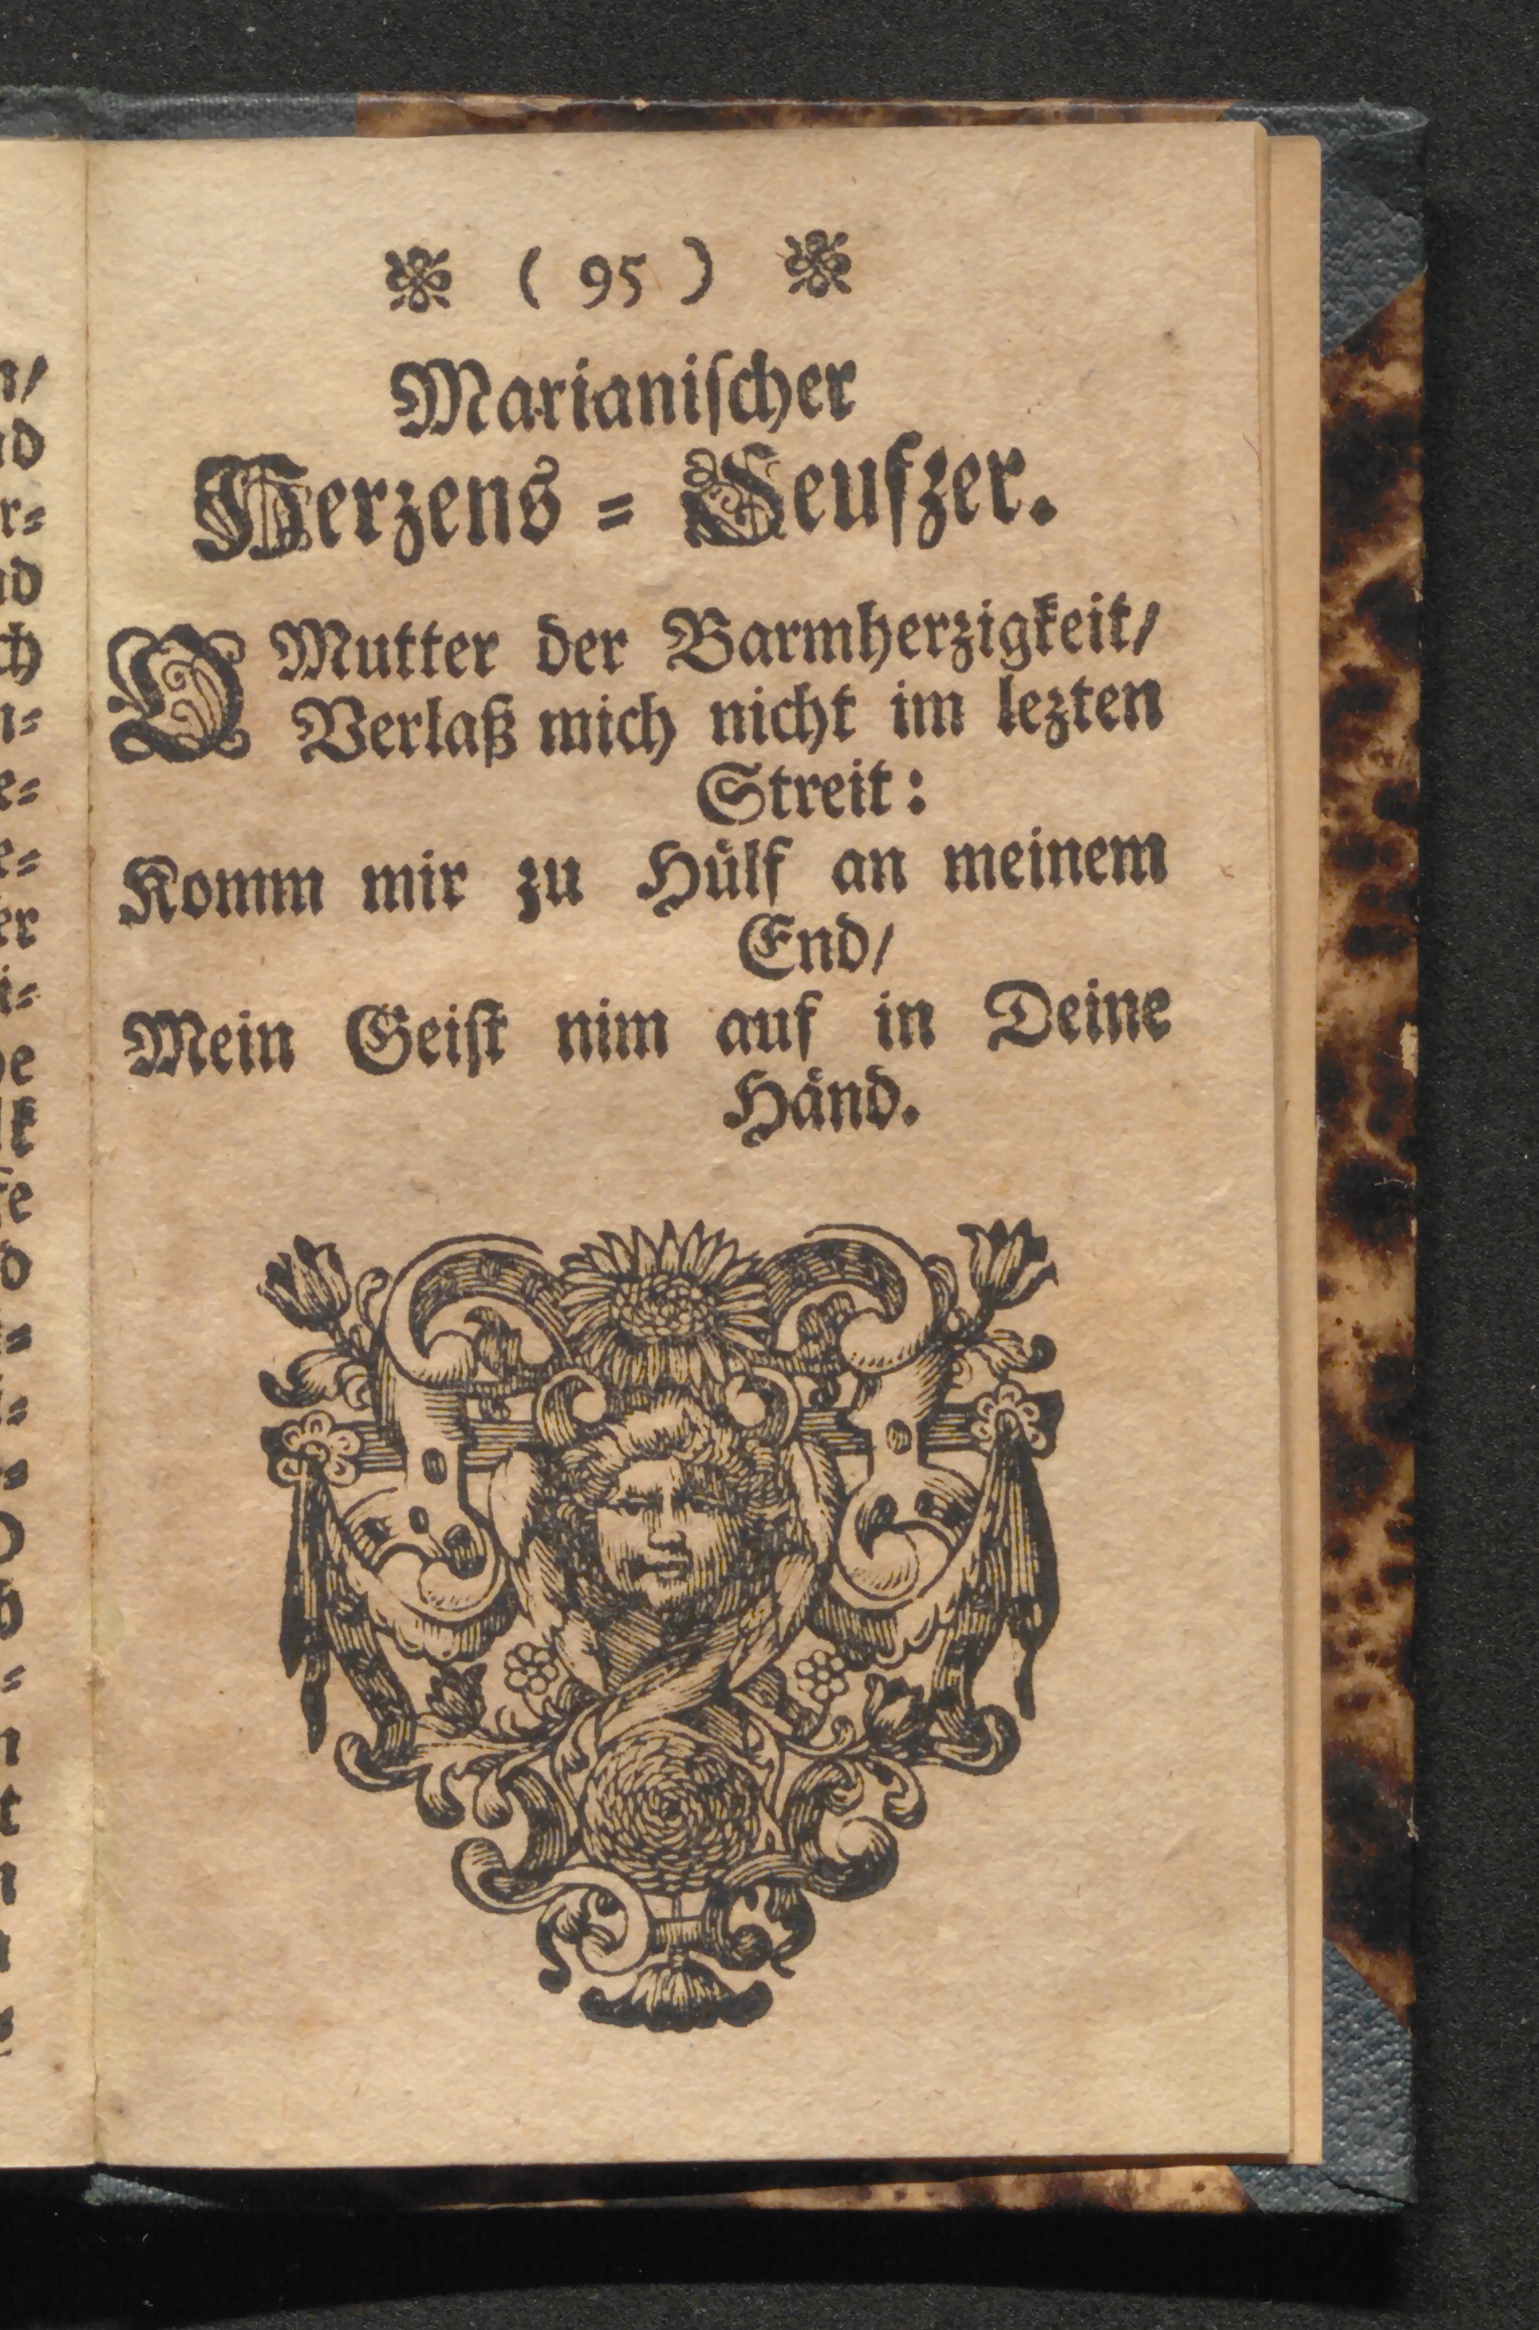 ( 95 )
Marianiſcher
Herzens = Seufzer.
O Mutter der Barmherzigkeit/
Verlaß mich nicht im lezten
Streit:
Komm mir zu Huͤlf an meinem
End/
Mein Geiſt nim auf in Deine
Haͤnd.